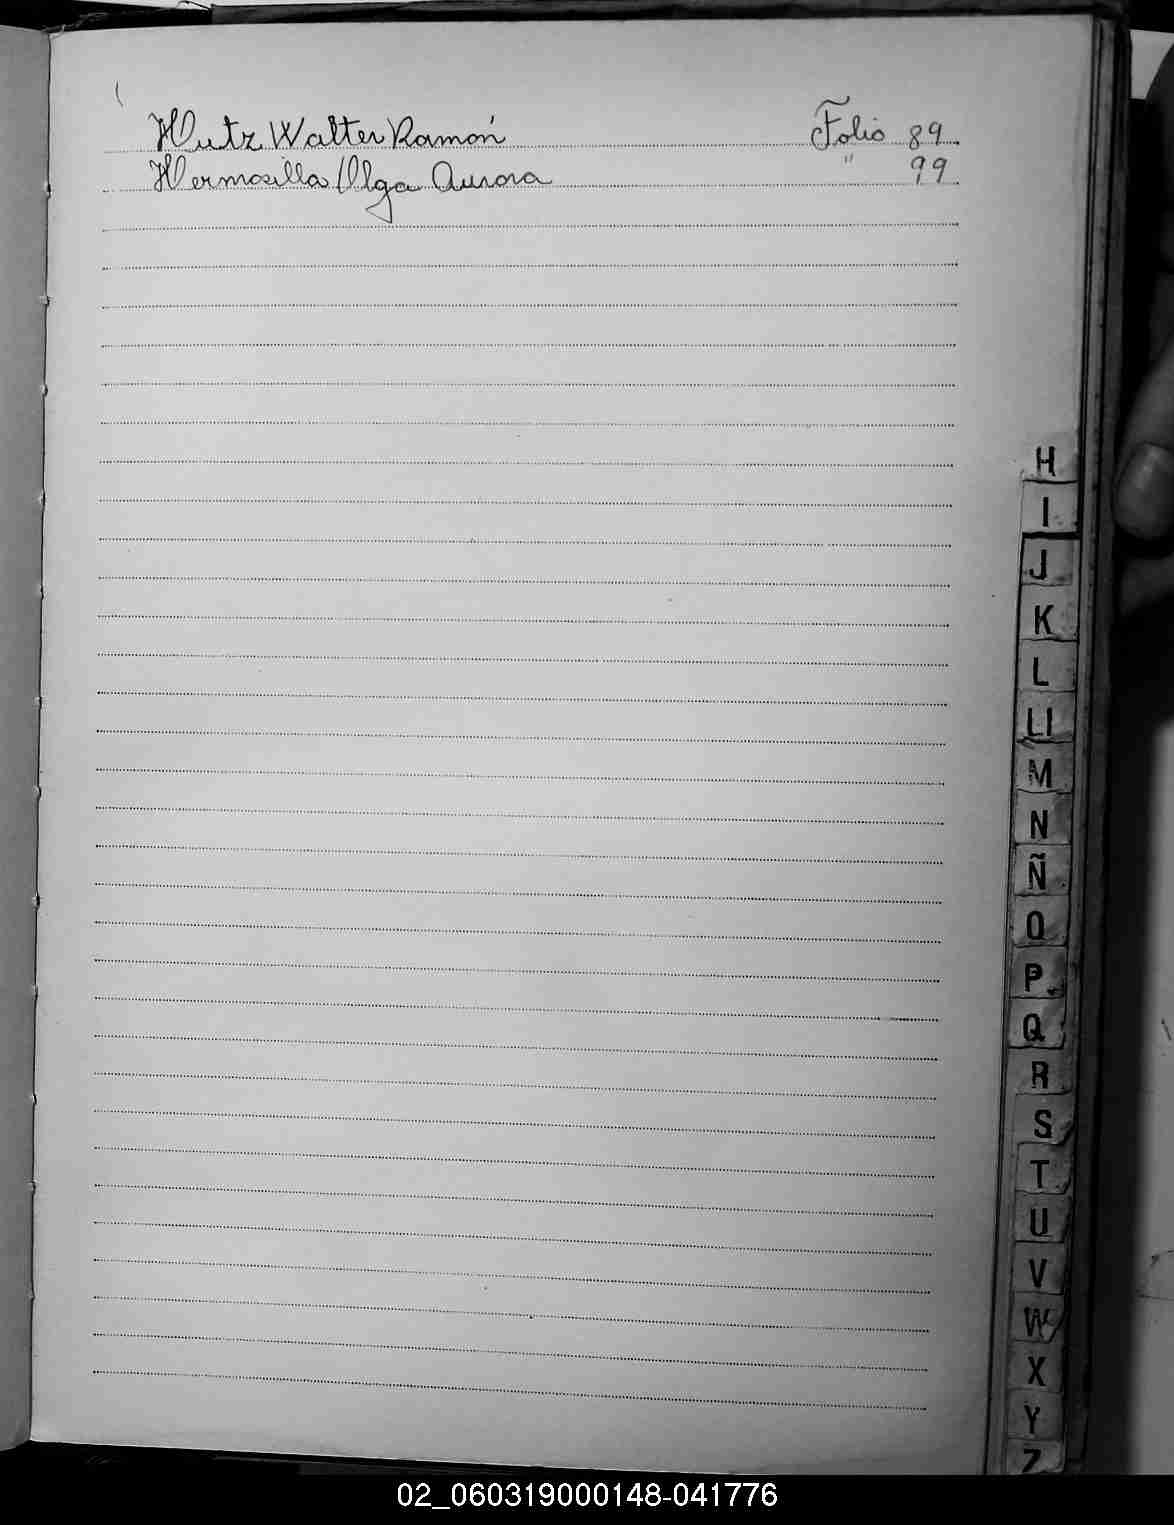 Hutz Walter Ramón Folio 89
Hermosilla Olga Aurora " 99
H
I
J
K
L
Ll
M
N
Ñ
O
P
Q
R
S
T
U
V
W
X
Y
Z
02_060319000148-041776